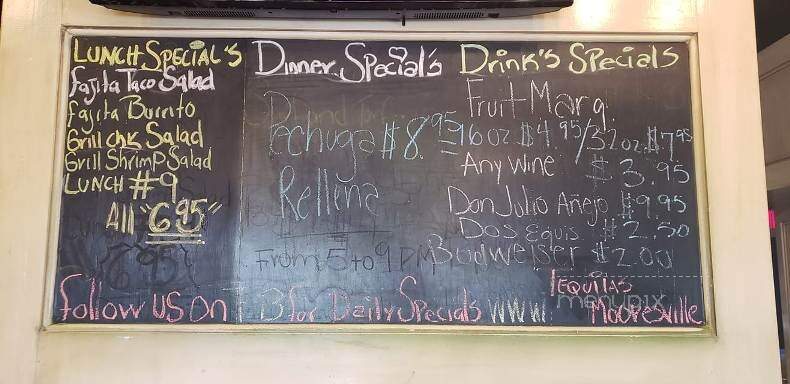 LUNCH SPECIAL'S
Fajita Taco Salad
Fajita Burrito
Grill chk Salad
Grill Shrimp Salad
LUNCH #9
All "6.95"
Dinner Special's
Pechuga $8.95
Rellena
From 5 to 9 PM
Drink's Specials
Fruit Marg.
16oz $4.95/32oz $7.95
Any Wine $3.95
Don Julio Añejo $9.95
Dos Equis $2.50
Budweiser $2.00
Follow us on FB for Daily Specials WWW.
TEQUILAS
Mooresville
menupix